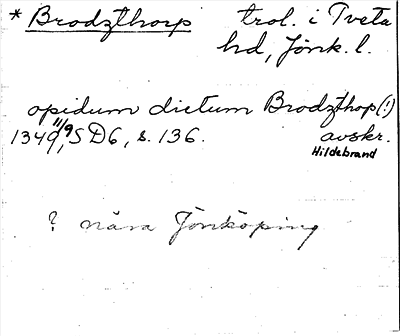 * Brodzthorp trol. i Tveta
hd, Jönk. l.
opidum dictum Brodzthop (!)
1349 11/9, SD6, s. 136. avskr.
Hildebrand
? nära Jönköping